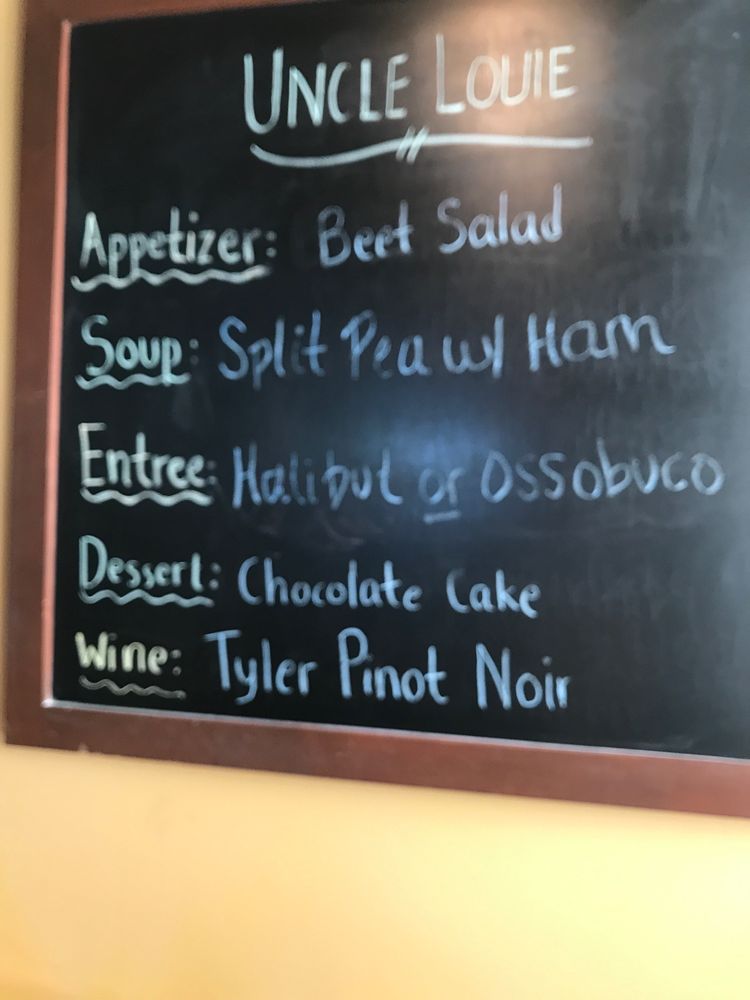 UNCLE LOUIE
Appetizer: Beet Salad
Soup: Split Pea w/ Ham
Entree: Halibut or Ossobuco
Dessert: Chocolate Cake
Wine: Tyler Pinot Noir